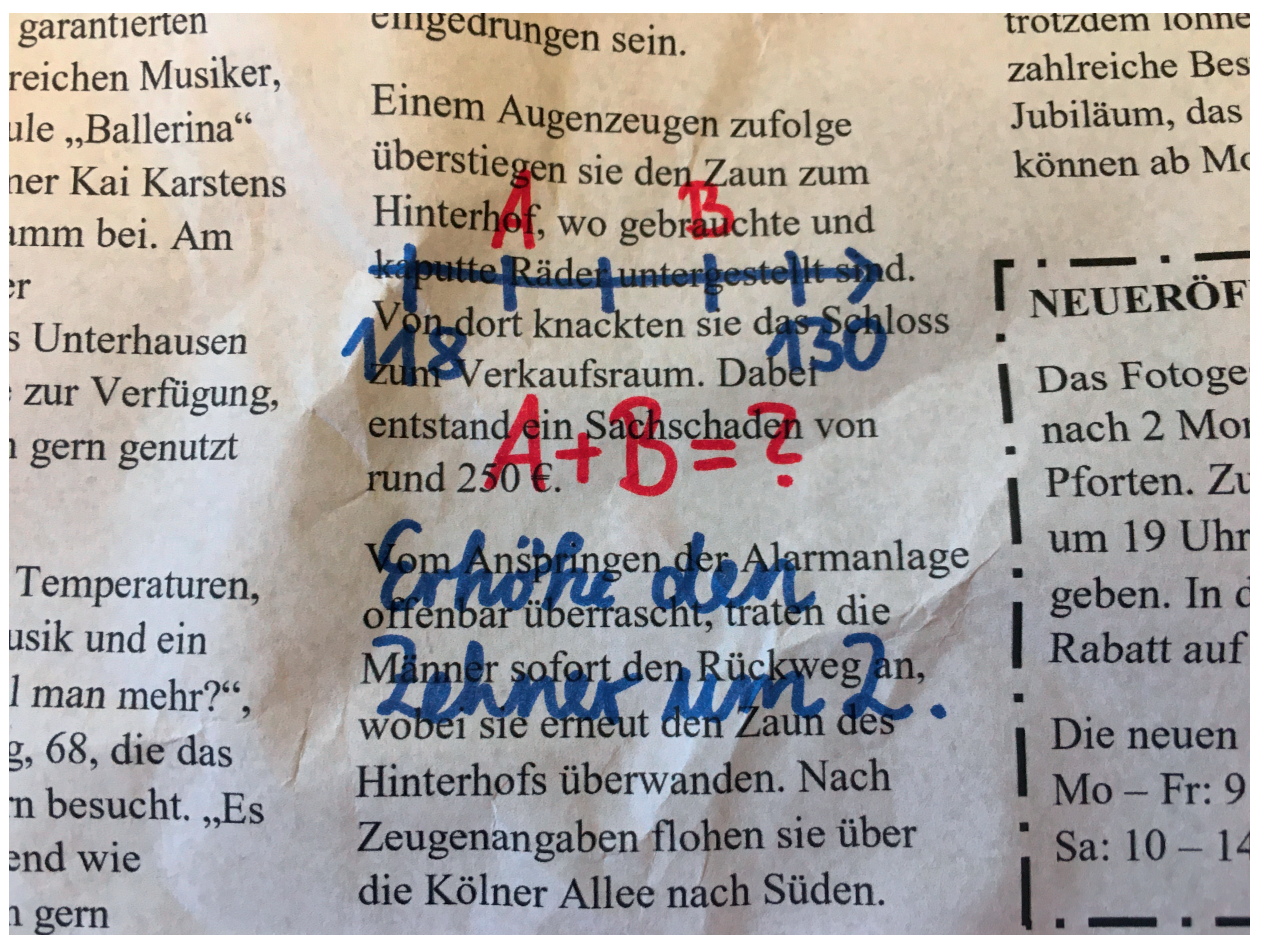 garantierten
reichen Musiker,
ule „Ballerina“
ner Kai Karstens
amm bei. Am
er
s Unterhausen
zur Verfügung,
n gern genutzt
Temperaturen,
usik und ein
l man mehr?“,
g, 68, die das
rn besucht. „Es
end wie
n gern
eingedrungen sein.
Einem Augenzeugen zufolge
überstiegen sie den Zaun zum
Hinterhof, wo gebrauchte und
kaputte Räder untergestellt sind.
Von dort knackten sie das Schloss
zum Verkaufsraum. Dabei
entstand ein Sachschaden von
rund 250 €.
Vom Anspringen der Alarmanlage
offenbar überrascht, traten die
Männer sofort den Rückweg an,
wobei sie erneut den Zaun des
Hinterhofs überwanden. Nach
Zeugenangaben flohen sie über
die Kölner Allee nach Süden.
A B
118 130
A + B = ?
Erhöhe den
Zehner um 2.
trotzdem lohne
zahlreiche Bes
Jubiläum, das
können ab Mo
NEUERÖF
Das Fotoge
nach 2 Mon
Pforten. Zu
um 19 Uhr
geben. In d
Rabatt auf
Die neuen
Mo – Fr: 9
Sa: 10 – 14